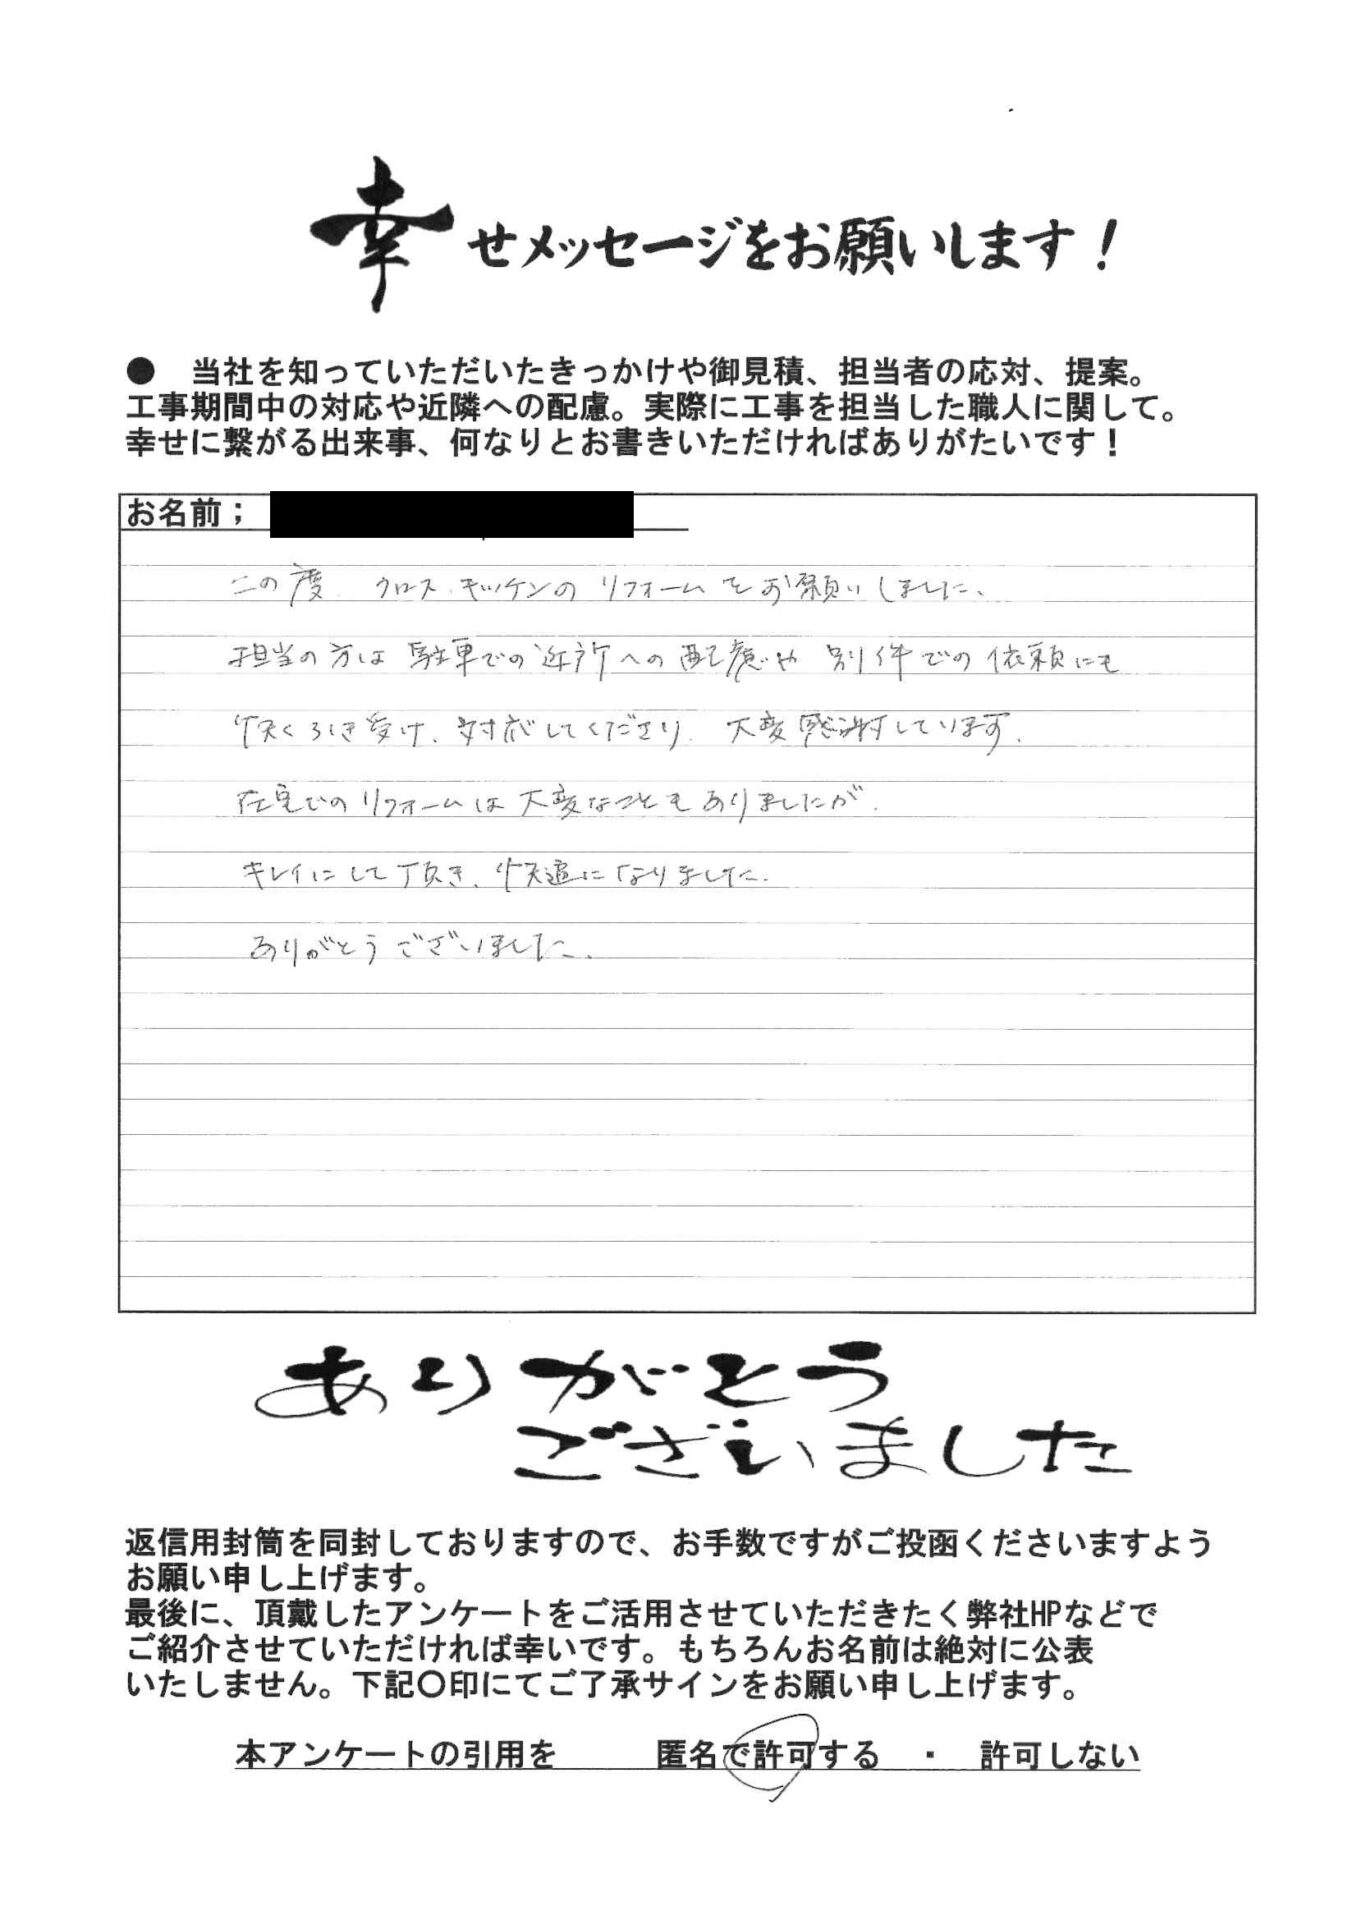 幸せメッセージをお願いします！
●　当社を知っていただいたきっかけや御見積、担当者の応対、提案。
工事期間中の対応や近隣への配慮。実際に工事を担当した職人に関して。
幸せに繋がる出来事、何なりとお書きいただければありがたいです！
お名前；
この度、クロス、キッチンのリフォームをお願いしました、
担当の方は駐車での近所への配慮や別件での依頼にも
快くひき受け、対応してくださり、大変感謝しています．
在宅でのリフォームは大変なこともありましたが、
キレイにして頂き、快適になりました．
ありがとうございました．
ありがとう
ございました
返信用封筒を同封しておりますので、お手数ですがご投函くださいますよう
お願い申し上げます。
最後に、頂戴したアンケートをご活用させていただきたく弊社HPなどで
ご紹介させていただければ幸いです。もちろんお名前は絶対に公表
いたしません。下記〇印にてご了承サインをお願い申し上げます。
本アンケートの引用を　　　匿名で許可する　・　許可しない